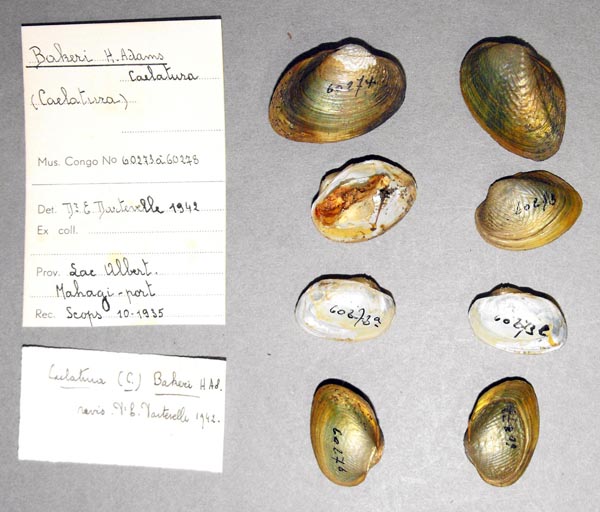 Bakeri H. Adams
Caelatura
(Caelatura)
Mus. Congo No 60273 à 60278
Det. Dr. E. Dartevelle 1942
Ex coll.
Prov. Lac Albert.
Mahagi-port
Rec. Scops 10-1935
Caelatura (C.) Bakeri H. Ad.
revis. Dr E. Dartevelle 1942.
60274
60273a
60276